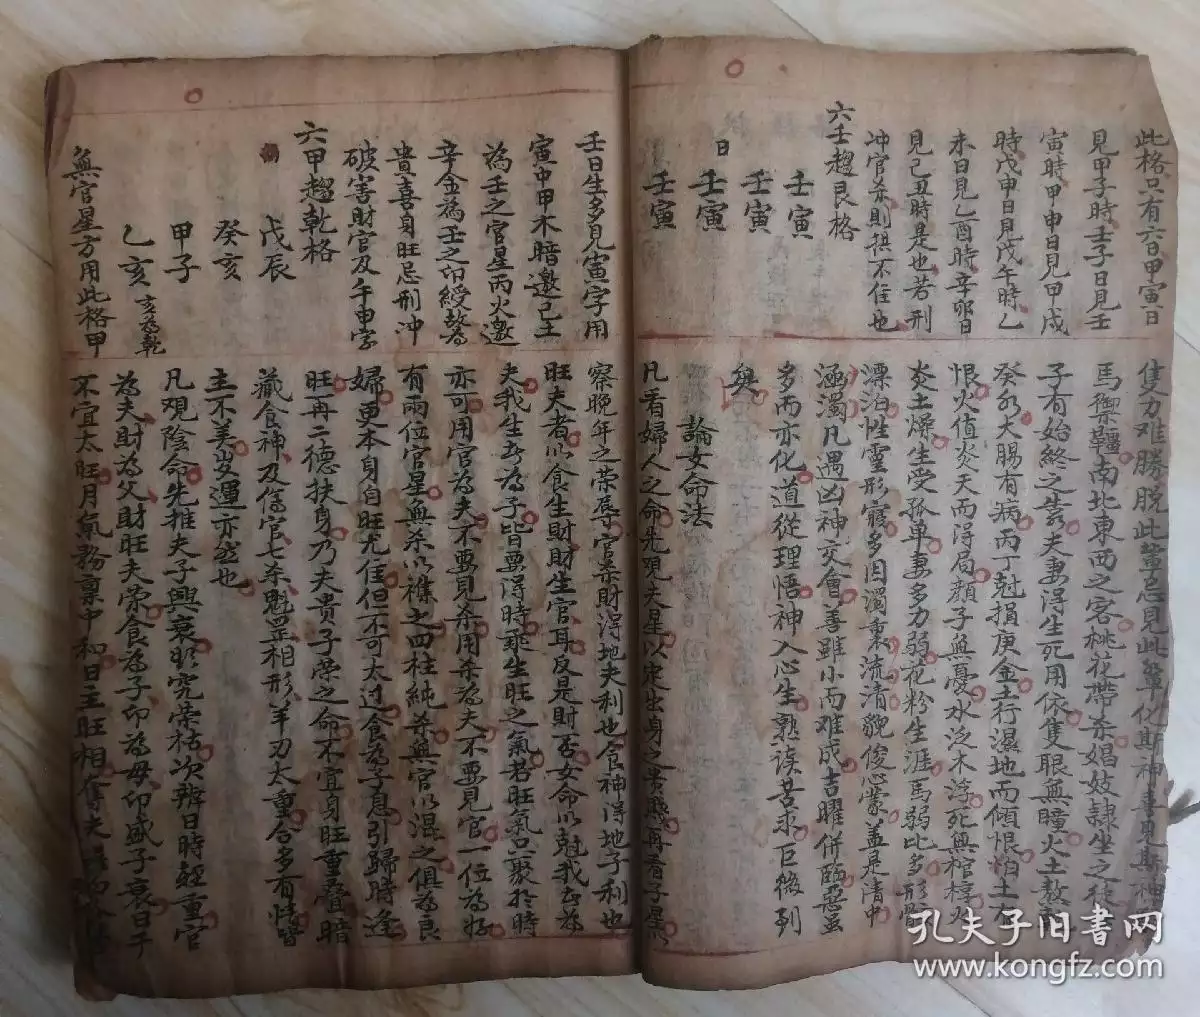 此格只有六日甲寅日
見甲子時壬子日見壬
寅時甲申日見甲戌
時戊申日見戊午時乙
未日見乙酉時辛卯日
見己丑時是也若刑
冲官杀則拱不住也
六壬趨艮格
壬寅
壬寅
日壬寅
壬寅
隻力难勝脱此輩忌見此輩化斯神喜見斯神
馬禦韁南北東西之客桃花帶杀娼妓隷坐之徒
子有始終之喪夫妻得生死用依隻眼無瞳火土熬
癸水大腸有病丙丁尅損庚金土行濕地而傾恨怕土
恨火值炎天而得局顔子無憂水泛木浮死無棺椁火
炎土燥生受孤单妻多力弱花粉生涯馬弱比多形
漂泊性靈形寢多因濁裏流清貌俊心蒙盖是清中
涵濁凡遇凶神交會善雖小而难成吉曜併臨惡虽
多而亦化道從理悟神入心生熟读苦求巨微列
奥
論女命法
凡看婦人之命先現夫星以定出身之贵贱再看子星以
壬日生多見寅字用
寅中甲木暗邀己土
為壬之官星丙火邀
辛金為壬之印綬
貴喜身旺忌刑冲
破害財官及午申字
六甲趨乾格
戊辰
癸亥
甲子
乙亥 亥為乾
無官星方用此格甲
察晚年之荣辱官杀財得地夫利也食神得地子利也
旺夫者以食生財財生官耳反是財否女命以尅我者為
夫我生者為子皆要得時乘生旺之氣若旺氣只聚於時
亦可用官為夫不要見杀用杀為夫不要見官一位為好
有兩位官星無杀以襍之四柱純杀無官以混之俱為良
婦更本身自旺尤佳但不可太过食為子息引歸時逢
旺再二德扶身乃夫贵子荣之命不宜身旺重叠暗
藏食神及傷官七杀魁罡相形羊刃太重合多有情皆
主不美岁運亦然也
凡观陰命先推夫子興衰明究荣枯次辨日時輕重官
為夫財為父財旺夫荣食為子印為母印盛子衰日干
不宜太旺月氣務禀中和日主旺相奪夫
孔夫子旧书网
www.kongfz.com